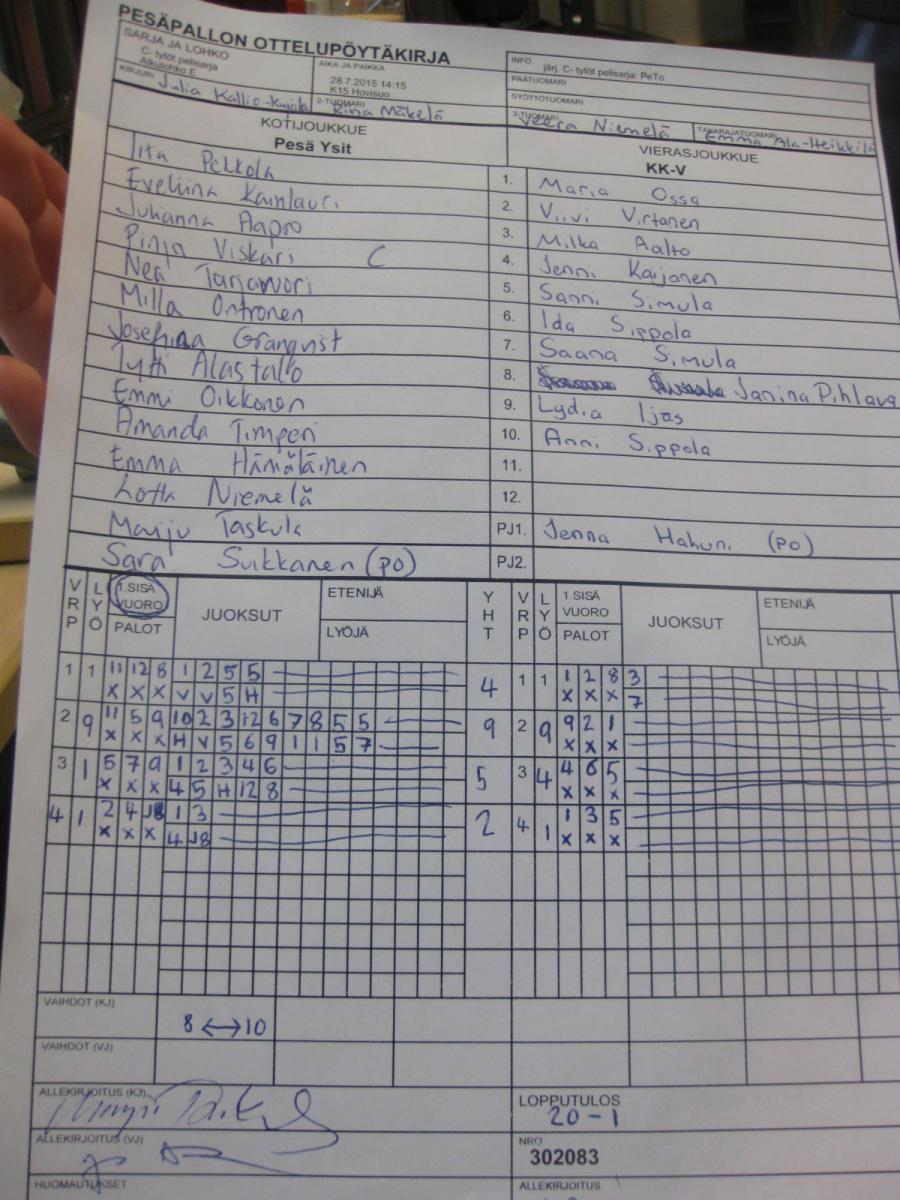 PESÄPALLON OTTELUPÖYTÄKIRJA
SARJA JA LOHKO
C- tytöt pelisarja
Alkulohko E
AIKA JA PAIKKA
28.7.2015 14:15
K15 Hovisuo
INFO
järj. C- tytöt pelisarja: PeTo
PÄÄTUOMARI
SYÖTTÖTUOMARI
KIRJURI Julia Kallio-Kujala
2-TUOMARI Riina Mäkelä
3-TUOMARI Veera Niemelä
TAKARAJATUOMARI Emma Ala-Heikkilä
KOTIJOUKKUE
Pesä Ysit
VIERASJOUKKUE
KK-V
Iita Pekkola 1. Maria Ossa
Eveliina Kainlauri 2. Viivi Virtanen
Juhanna Aapro 3. Milka Aalto
Pinja Viskari C 4. Jenni Kaijanen
Nea Tarjavuori 5. Sanni Simula
Milla Ontronen 6. Ida Sippola
Josefiina Granqvist 7. Saana Simula
Tytti Alastallo 8. Janina Pihlava
Emmi Oikkonen 9. Lydia Ijas
Amanda Timperi 10. Anni Sippola
Emma Hämäläinen 11.
Lotta Niemelä 12.
Maiju Taskula PJ1. Jenna Hakuni (po)
Sara Suikkanen (po) PJ2.
VRP LYÖ 1.SISÄ VUORO PALOT JUOKSUT ETENIJÄ LYÖJÄ YHT VRP LYÖ 1.SISÄ VUORO PALOT JUOKSUT ETENIJÄ LYÖJÄ
1 1 11 12 8 1 2 5 5 4 1 1 1 2 8 3
x x x V V 5 H x x x 7
2 9 11 5 9 10 2 3 12 6 7 8 5 5 9 2 9 9 2 1
x x x H V 5 6 9 1 1 5 7 x x x
3 1 5 7 9 1 2 3 4 6 5 3 4 4 6 5
x x x 4 5 H 12 8 x x x
4 1 2 4 J8 1 3 2 4 1 1 3 5
x x x 4 J8 x x x
VAIHDOT (KJ)
8 ↔ 10
VAIHDOT (VJ)
ALLEKIRJOITUS (KJ)
LOPPUTULOS
20-1
ALLEKIRJOITUS (VJ)
NRO
302083
HUOMAUTUKSET
ALLEKIRJOITUS